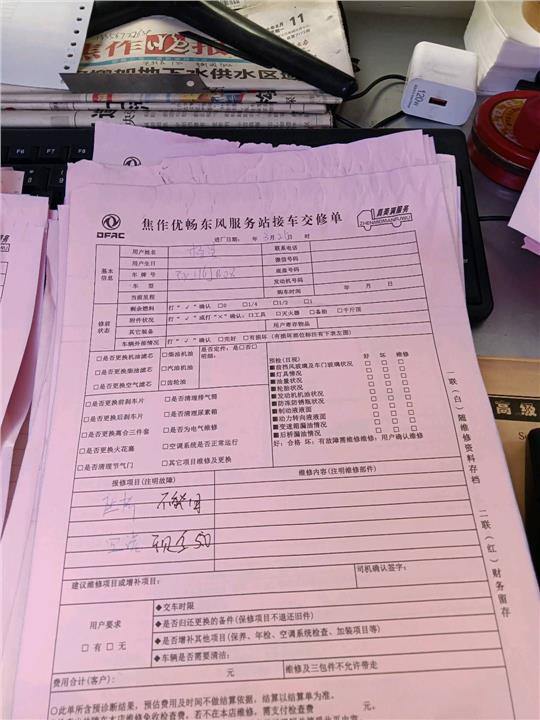 焦作日报
11
120W
DFAC
焦作优畅东风服务站接车交修单
真美满服务
ZHENMEIMANFUWU
进厂日期: 年 3月 日 时
基本信息
用户姓名
联系电话
用户生日
微信号码
车牌号
底盘号码
车 型
发动机号码
当前里程
购车时间 年 月 日
修前状态
剩余燃料 打“√”确认 □0 □1/4 □1/2 □1
附件状况 打“√”或打“×”确认:□工具 □灭火器 □备胎 □千斤顶
其它装备
用户寄存物品
车辆外部情况 打“√”确认 □完好 □有损坏 (有损坏部位标注有下表左图)
□是否更换机油滤芯 □柴油机油
□是否更换柴油滤芯 □汽油机油
□是否更换空气滤芯 □齿轮油
是否定件:是□否□
明细:
□是否更换前刹车片 □是否清理排气筒
□是否更换后刹车片 □是否清理尿素箱
□是否更换离合三件套 □是否为电气维修
□是否更换火花塞 □空调系统是否正常运行
□是否清理节气门 □其它项目维修及更换
预检(目视) 好 坏 维修
■前挡风玻璃及车门玻璃状况 □ □ □
■灯具情况 □ □ □
■油量状况 □ □ □
■轮胎状况 □ □ □
■发动机机油状况 □ □ □
■防冻防锈瓶状况 □ □ □
■制动液液面 □ □ □
■动力转向液液面 □ □ □
■变速箱漏油情况 □ □ □
■后桥漏油情况 □ □ □
好:合格 坏:有故障需维修维修:用户确认维修
报修项目(注明故障)
维修内容(注明维修部件)
不能用
50
建议维修项目或增补项目:
司机确认签字:
用户要求
□有□无
◆交车时限
◆是否归还更换的备件(保修项目不退还旧件)
◆是否增补其他项目(保养、年检、空调系统检查、加装项目等)
◆车辆是否需要清洁:
费用合计(客户): 元
维修及三包件不允许带走
○此单所含预诊断结果,预估费用及时间不做结算依据,结算以结算单为准。
一联(白)随维修资料存档
二联(红)财务留存
高级